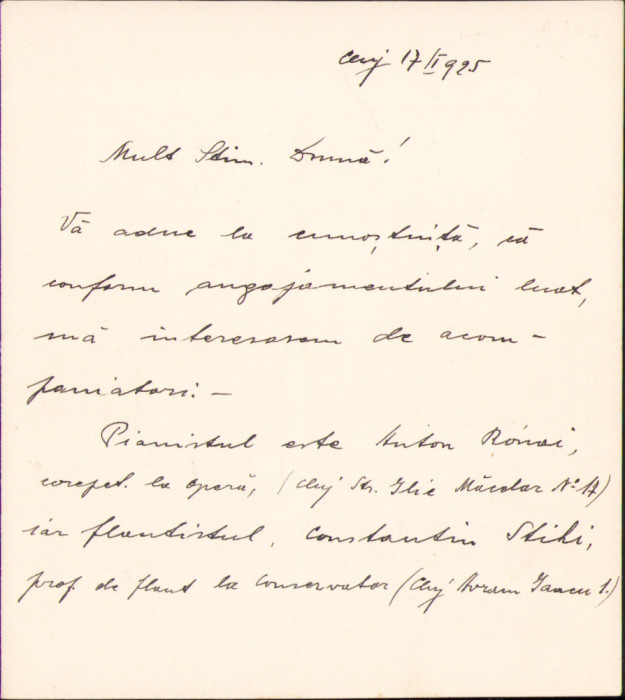 Cluj 17 II 925
Mult Stim. Doamnă!
Vă aduc la cunoștință, că
conform angajamentului luat,
mă interesasem de acom-
paniatori. —
Pianistul este Anton Rónai,
corepet. la operă, (Cluj Str. Ilie Măcelar No 17)
iar flautistul, Constantin Stihi,
prof. de flaut la Conservator (Cluj Avram Iancu 1.)